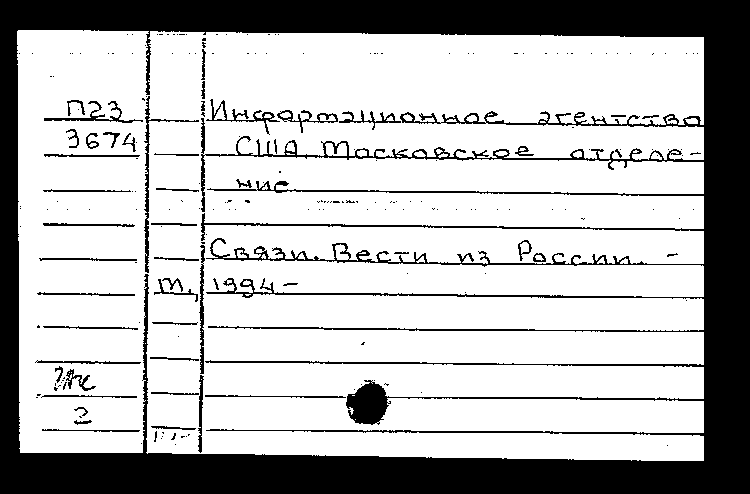 П23
3674
Информационное агентство
США. Московское отделе-
ние
Связи. Вести из России. -
м., 1994-
2